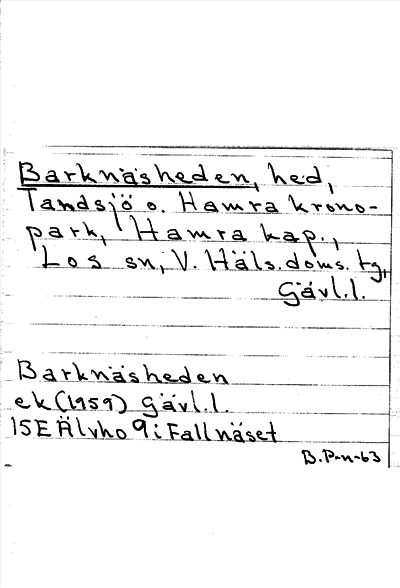 Barknäsheden, hed,
Tandsjö o. Hamra krono-
park, Hamra kap.,
Los sn, V. Häls. doms. tg,
Gävl.l.
Barknäsheden
ek (1959) Gävl.l.
15E Älvho 9i Fallnäset
B.P-n-63